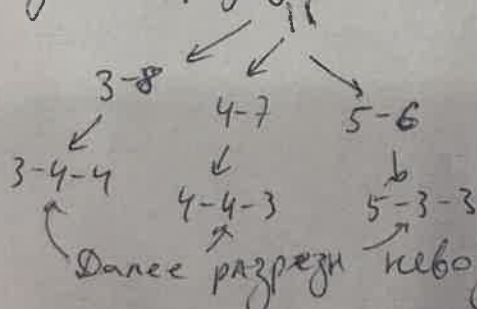 11
3-8 4-7 5-6
3-4-4 4-4-3 5-3-3
Далее разрезн нево